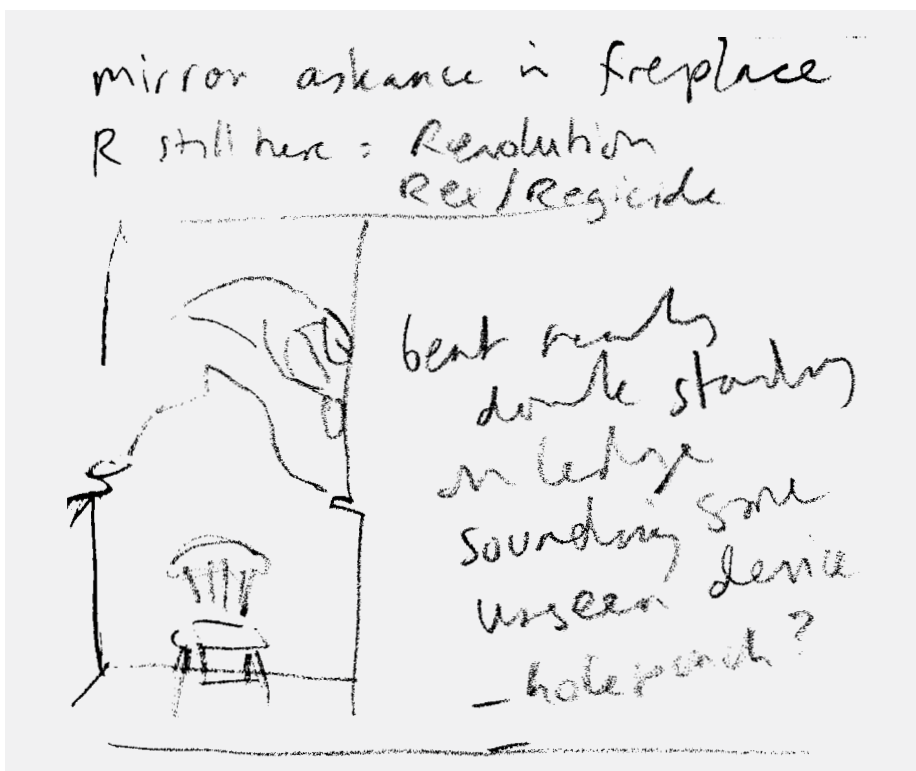 mirror askance in fireplace
R still here : Revolution
Rex / Regicide
bent
double standing
on ledge
sounding some
unseen device
– hole punch?